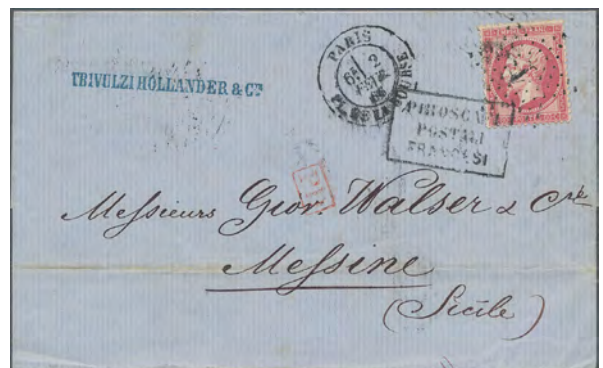 TRIVULZI HOLLANDER & Cie
PARIS
2
PL. DE LA BOURSE
EMPIRE FRANC
PIROSCAFI
POSTALI
FRANCESI
PD
Messieurs Giov. Walser & Cie
Messine
(Sicile)